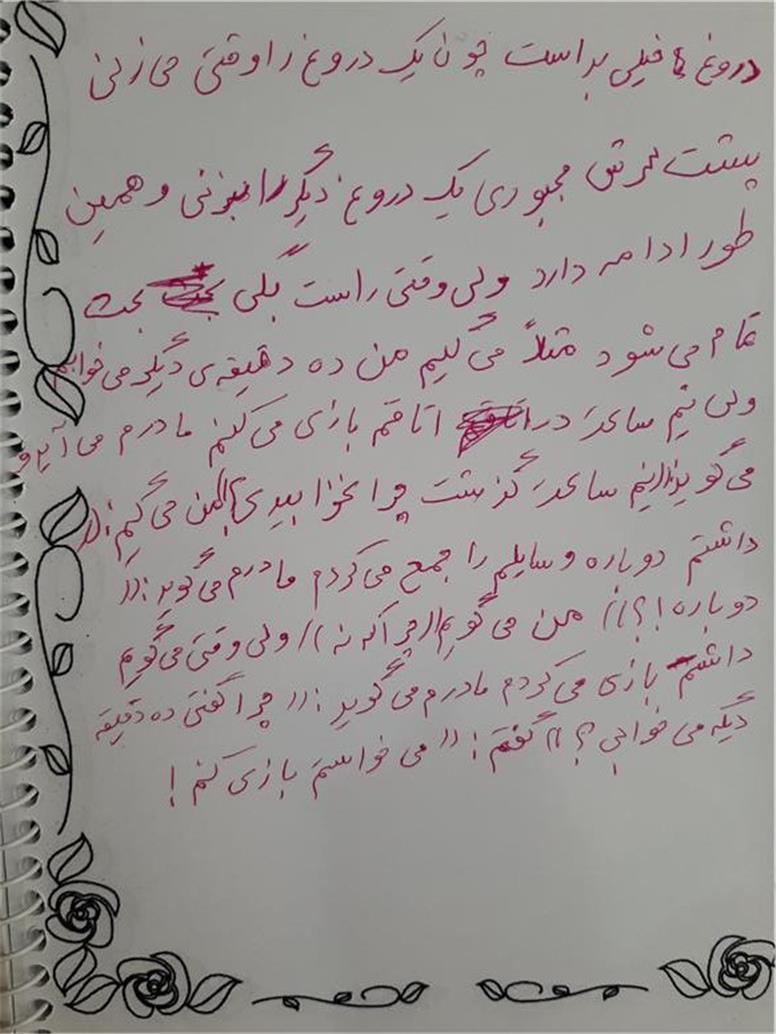 دروغ ها خیلی بد است چون یک دروغ را وقتی می زنی
پشت سرش مجبوری یک دروغ دیگر را بزنی و همین
طور ادامه دارد ولی وقتی راست بگی بحث
تمام می شود مثلاً می گیم من ده دقیقه ی دیگر می خوابم
ولی نیم ساعت در اتاقم بازی می کنم مادرم می آید و
می گوید: ((نیم ساعت گذشت چرا نخوابیدی؟)) من می گیم: ((
داشتم دوباره وسایلم را جمع می کردم مادرم می گوید: ((
دوباره!؟)) من می گویم ((چرا که نه)) ولی وقتی می گویم
داشتم بازی می کردم مادرم می گوید: (( چرا گفتی ده دقیقه
دیگه می خوابی؟)) گفتم: (( می خواستم بازی کنم!